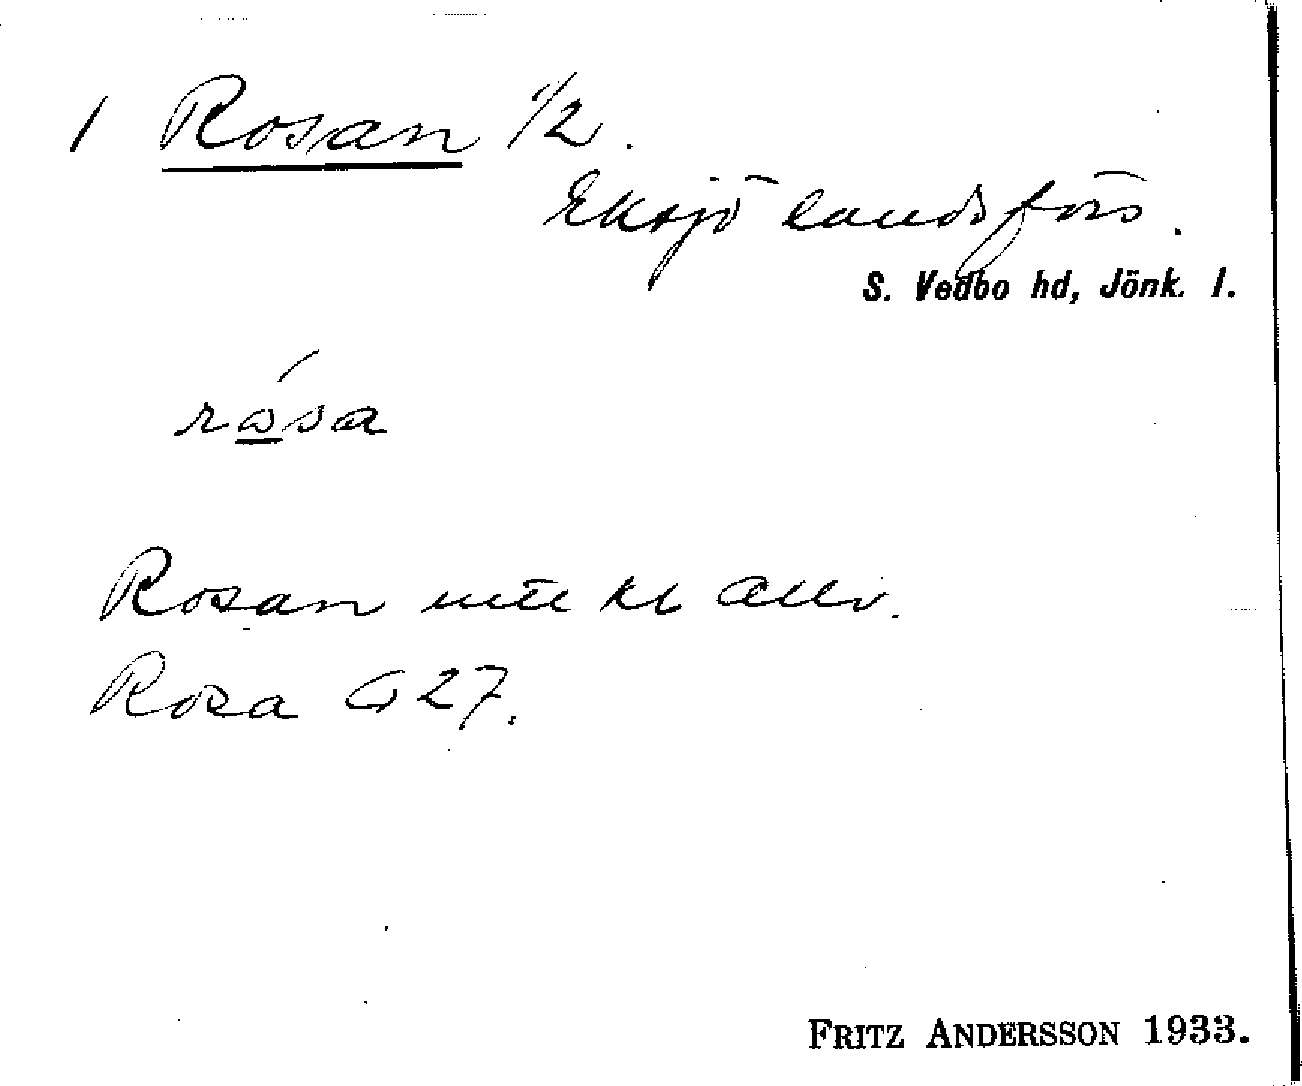 1 Rosan 1/2.
Eksjö landsförs.
S. Vedbo hd, Jönk. l.
rósa
Rosan mtl kb Allv.
Rosa G 27.
FRITZ ANDERSSON 1933.